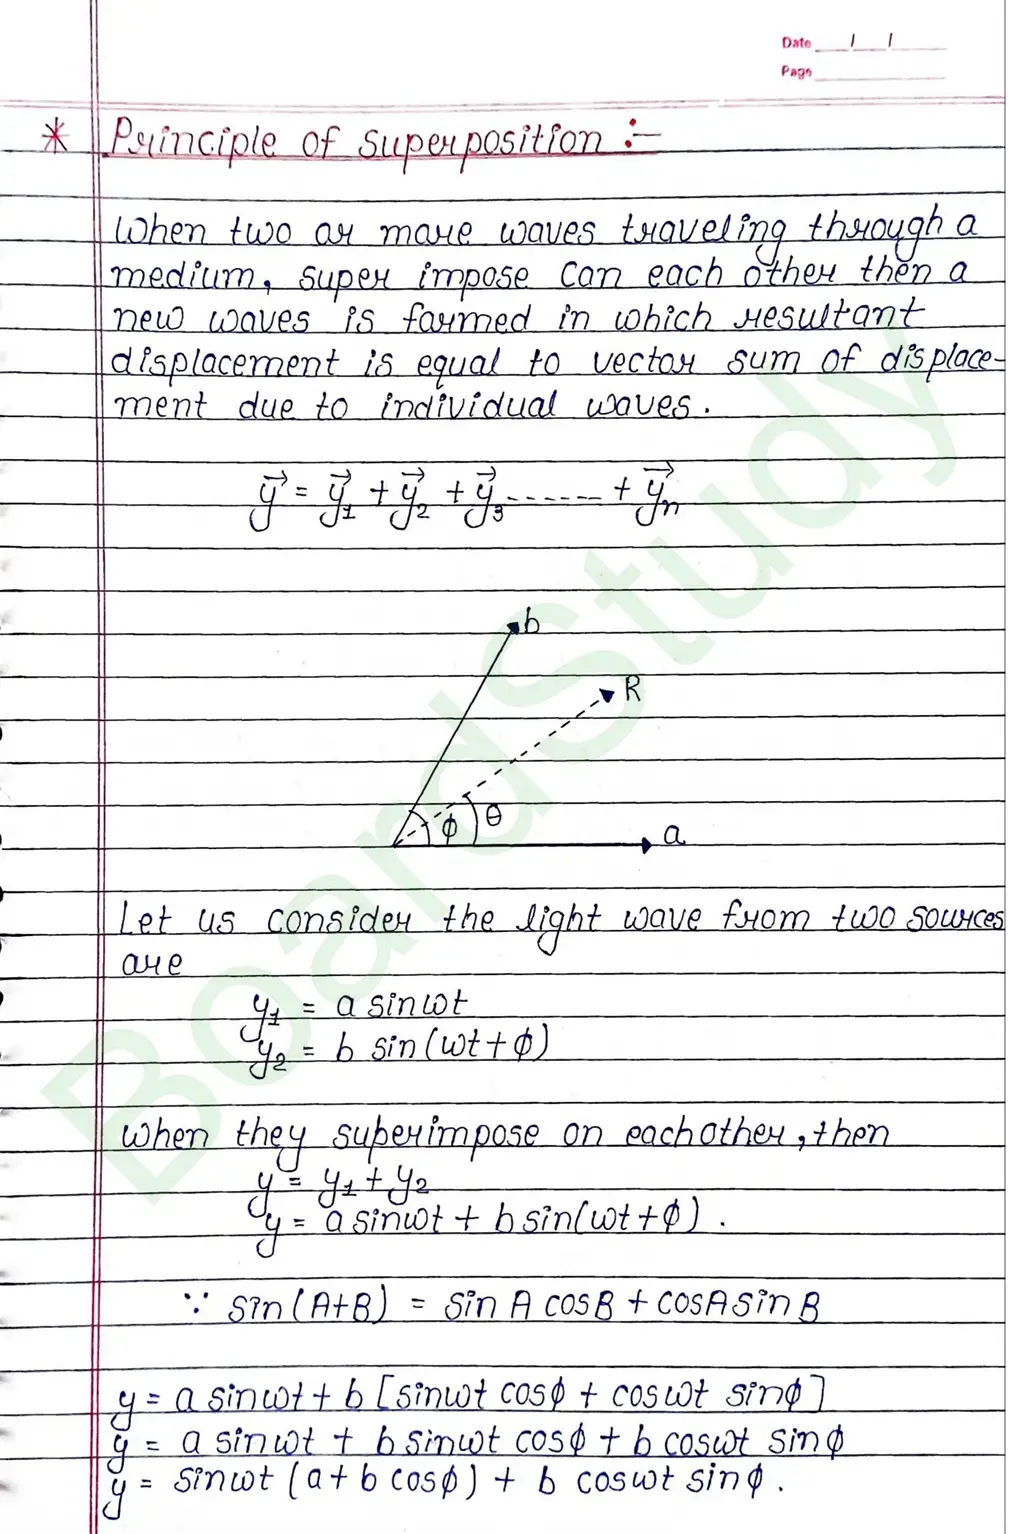 Date / /
Page
* Principle of superposition :-
When two or more waves traveling through a
medium, super impose can each other then a
new waves is formed in which resultant
displacement is equal to vector sum of displace-
ment due to individual waves.
y⃗ = y⃗₁ + y⃗₂ + y⃗₃ ------ + y⃗ₙ
b
R
ϕ θ
a
Let us consider the light wave from two sources
are
y₁ = a sinωt
y₂ = b sin(ωt+ϕ)
When they superimpose on eachother, then
y = y₁ + y₂
y = a sinωt + b sin(ωt+ϕ).
∵ sin(A+B) = sin A cosB + cosA sin B
y = a sinωt + b [sinωt cosϕ + cosωt sinϕ]
y = a sinωt + b sinωt cosϕ + b cosωt sinϕ
y = sinωt (a + b cosϕ) + b cosωt sinϕ.
BoardStudy